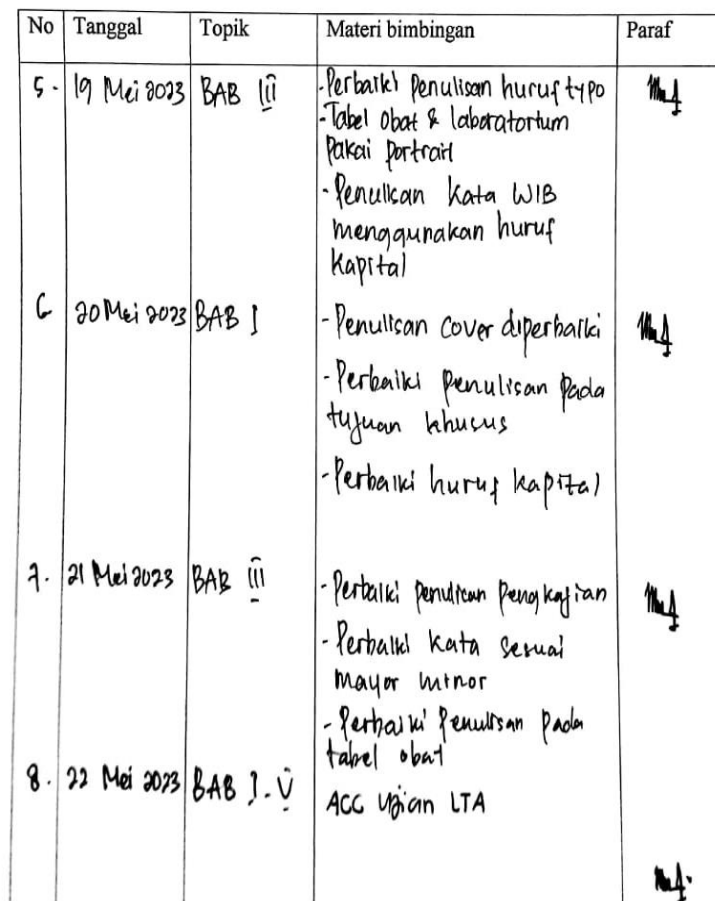 No Tanggal Topik Materi bimbingan Paraf
5. 19 Mei 2023 BAB III - Perbaiki Penulisan huruf typo
- Tabel obat & laboratorium
Pakai portrait
- Penulisan kata WIB
menggunakan huruf
kapital
6 20 Mei 2023 BAB I - Penulisan cover diperbaiki
- Perbaiki penulisan pada
tujuan khusus
- Perbaiki huruf kapital
7. 21 Mei 2023 BAB III - Perbaiki penulisan pengkajian
- Perbaiki kata sesuai
mayor minor
- Perbaiki Penulisan pada
tabel obat
8. 22 Mei 2023 BAB I-V ACC Ujian LTA